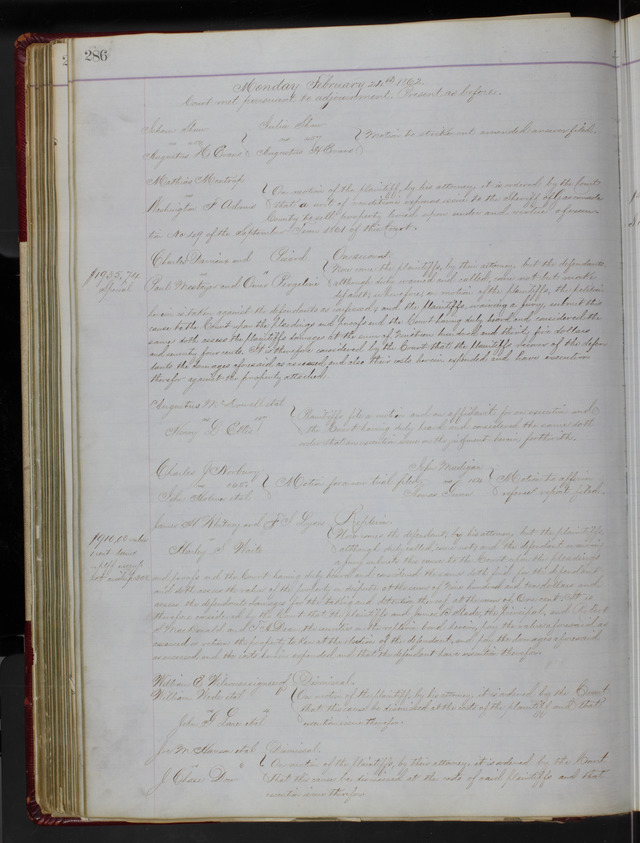 286
Monday February 24th 1862
Court met pursuant to adjournment. Present as before.
Julia
Motion to strike out amended answer filed.
Augustus H Evans Augustus H Evans
Mathias
On motion of the plaintiff, by his attorney it is ordered by the Court
Washington F Adams that a writ of venditioni exponas issue to the Sheriff of
County to sell property levied upon under and virtue of execu-
tion No. 49 of the September Term 1861 of this Court.
Charles and
Now come the plaintiffs, by their attorney, but the defendants,
$1935,74
Paul and although duly warned and called, come not but make
default, wherefore, on motion of the plaintiffs, the petition
herein is taken against the defendants as confessed, and the plaintiffs, waiving a jury, submit this
cause to the Court upon the pleadings and proofs and the Court having duly heard and considered the
same doth assess the plaintiffs damages at the sum of Nineteen hundred and thirty five dollars
and seventy four cents. It is therefore considered by the Court that the plaintiffs recover of the defen-
dants the damages aforesaid as assessed and also their costs herein expended and have execution
therefor against the property attached.
Augustus et al
Plaintiffs file a motion and an affidavit for an execution and
Henry G Ellis the Court having duly heard and considered the same doth
order that an execution issue on the judgment herein forthwith.
John Madigan
Charles J
Motion for a new trial filed Motion to affirm
John et al Thomas referees report filed.
James H and F S Lyons Replevin.
Now come the defendant, by his attorney but the plaintiffs,
$910,00 value
Harley White although duly called, come not, and the defendant waiving
a jury submits this cause to the Court upon the pleadings
and proofs and the Court having duly heard and considered the same doth find for the defendant
and doth assess the value of the property in dispute at the sum of Nine hundred and ten dollars and
assess the defendants damages for the taking and detention thereof at the sum of One cent. It is
therefore considered by the Court that the plaintiffs and the principal, and
the securities in the replevin bond herein pay the value aforesaid as
assessed or return the property taken at the election of the defendant, and pay the damages aforesaid
as assessed and the costs herein expended and that the defendant have execution therefor.
William E Dismissal.
William et al On motion of the plaintiff, by his attorney, it is ordered by the Court
that this cause be dismissed at the costs of the plaintiff and that
John G et al execution issue therefor.
et al Dismissal.
On motion of the plaintiffs, by their attorney, it is ordered by the Court
J. Chase Dow that this cause be dismissed at the costs of said plaintiffs and that
execution issue therefor